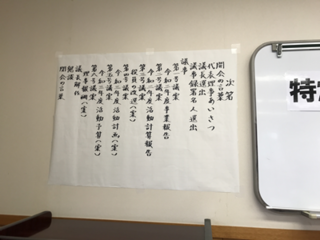 次第
開会の言葉
代表理事あいさつ
議長選出
議事録署名人選出
議事
第一号議案
令和二年度事業報告
第二号議案
令和二年度活動計算報告
第三号議案
役員の改選(案)
第四号議案
令和三年度活動計画(案)
第五号議案
令和三年度活動予算(案)
第六号議案
理事報酬(案)
議長解任
閉会の言葉
特定